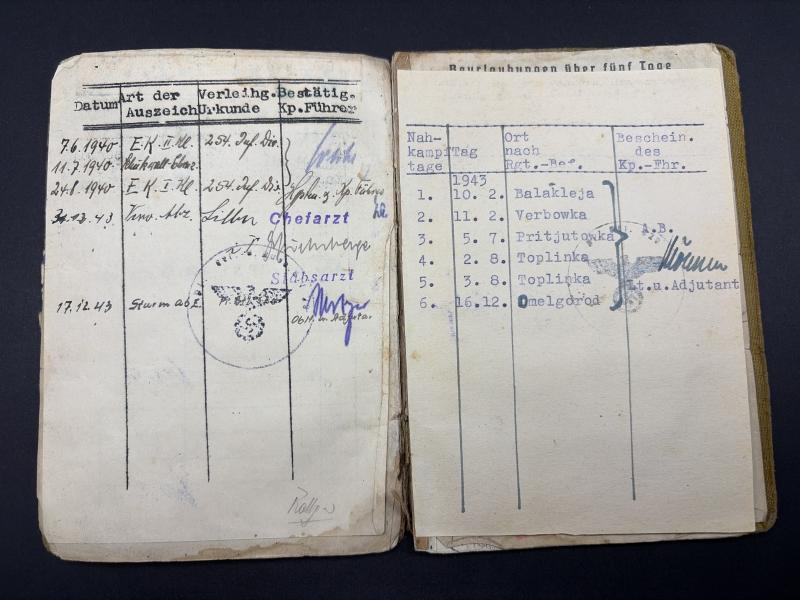 Datum Art der Auszeich Verleihg. Urkunde Bestätig. Kp.Führer
7.6.1940 E.K. II. Kl. 254. Inf. Div.
11.7.1940
24.8.1940 E.K. I. Kl. 254. Inf. Div.
12.43 Verw. Abz. Silber Chefarzt
Stabsarzt
17.12.43 Sturmabz.
Beurlaubungen über fünf Tage
Nah-kampftage Tag Ort nach Rgt.-Bef. Beschein. des Kp.-Fhr.
1943
1. 10. 2. Balakleja
2. 11. 2. Verbowka
3. 5. 7. Pritjutowka I.A.B.
4. 2. 8. Toplinka
5. 3. 8. Toplinka Lt.u.Adjutant
6. 16.12. Omelgorod